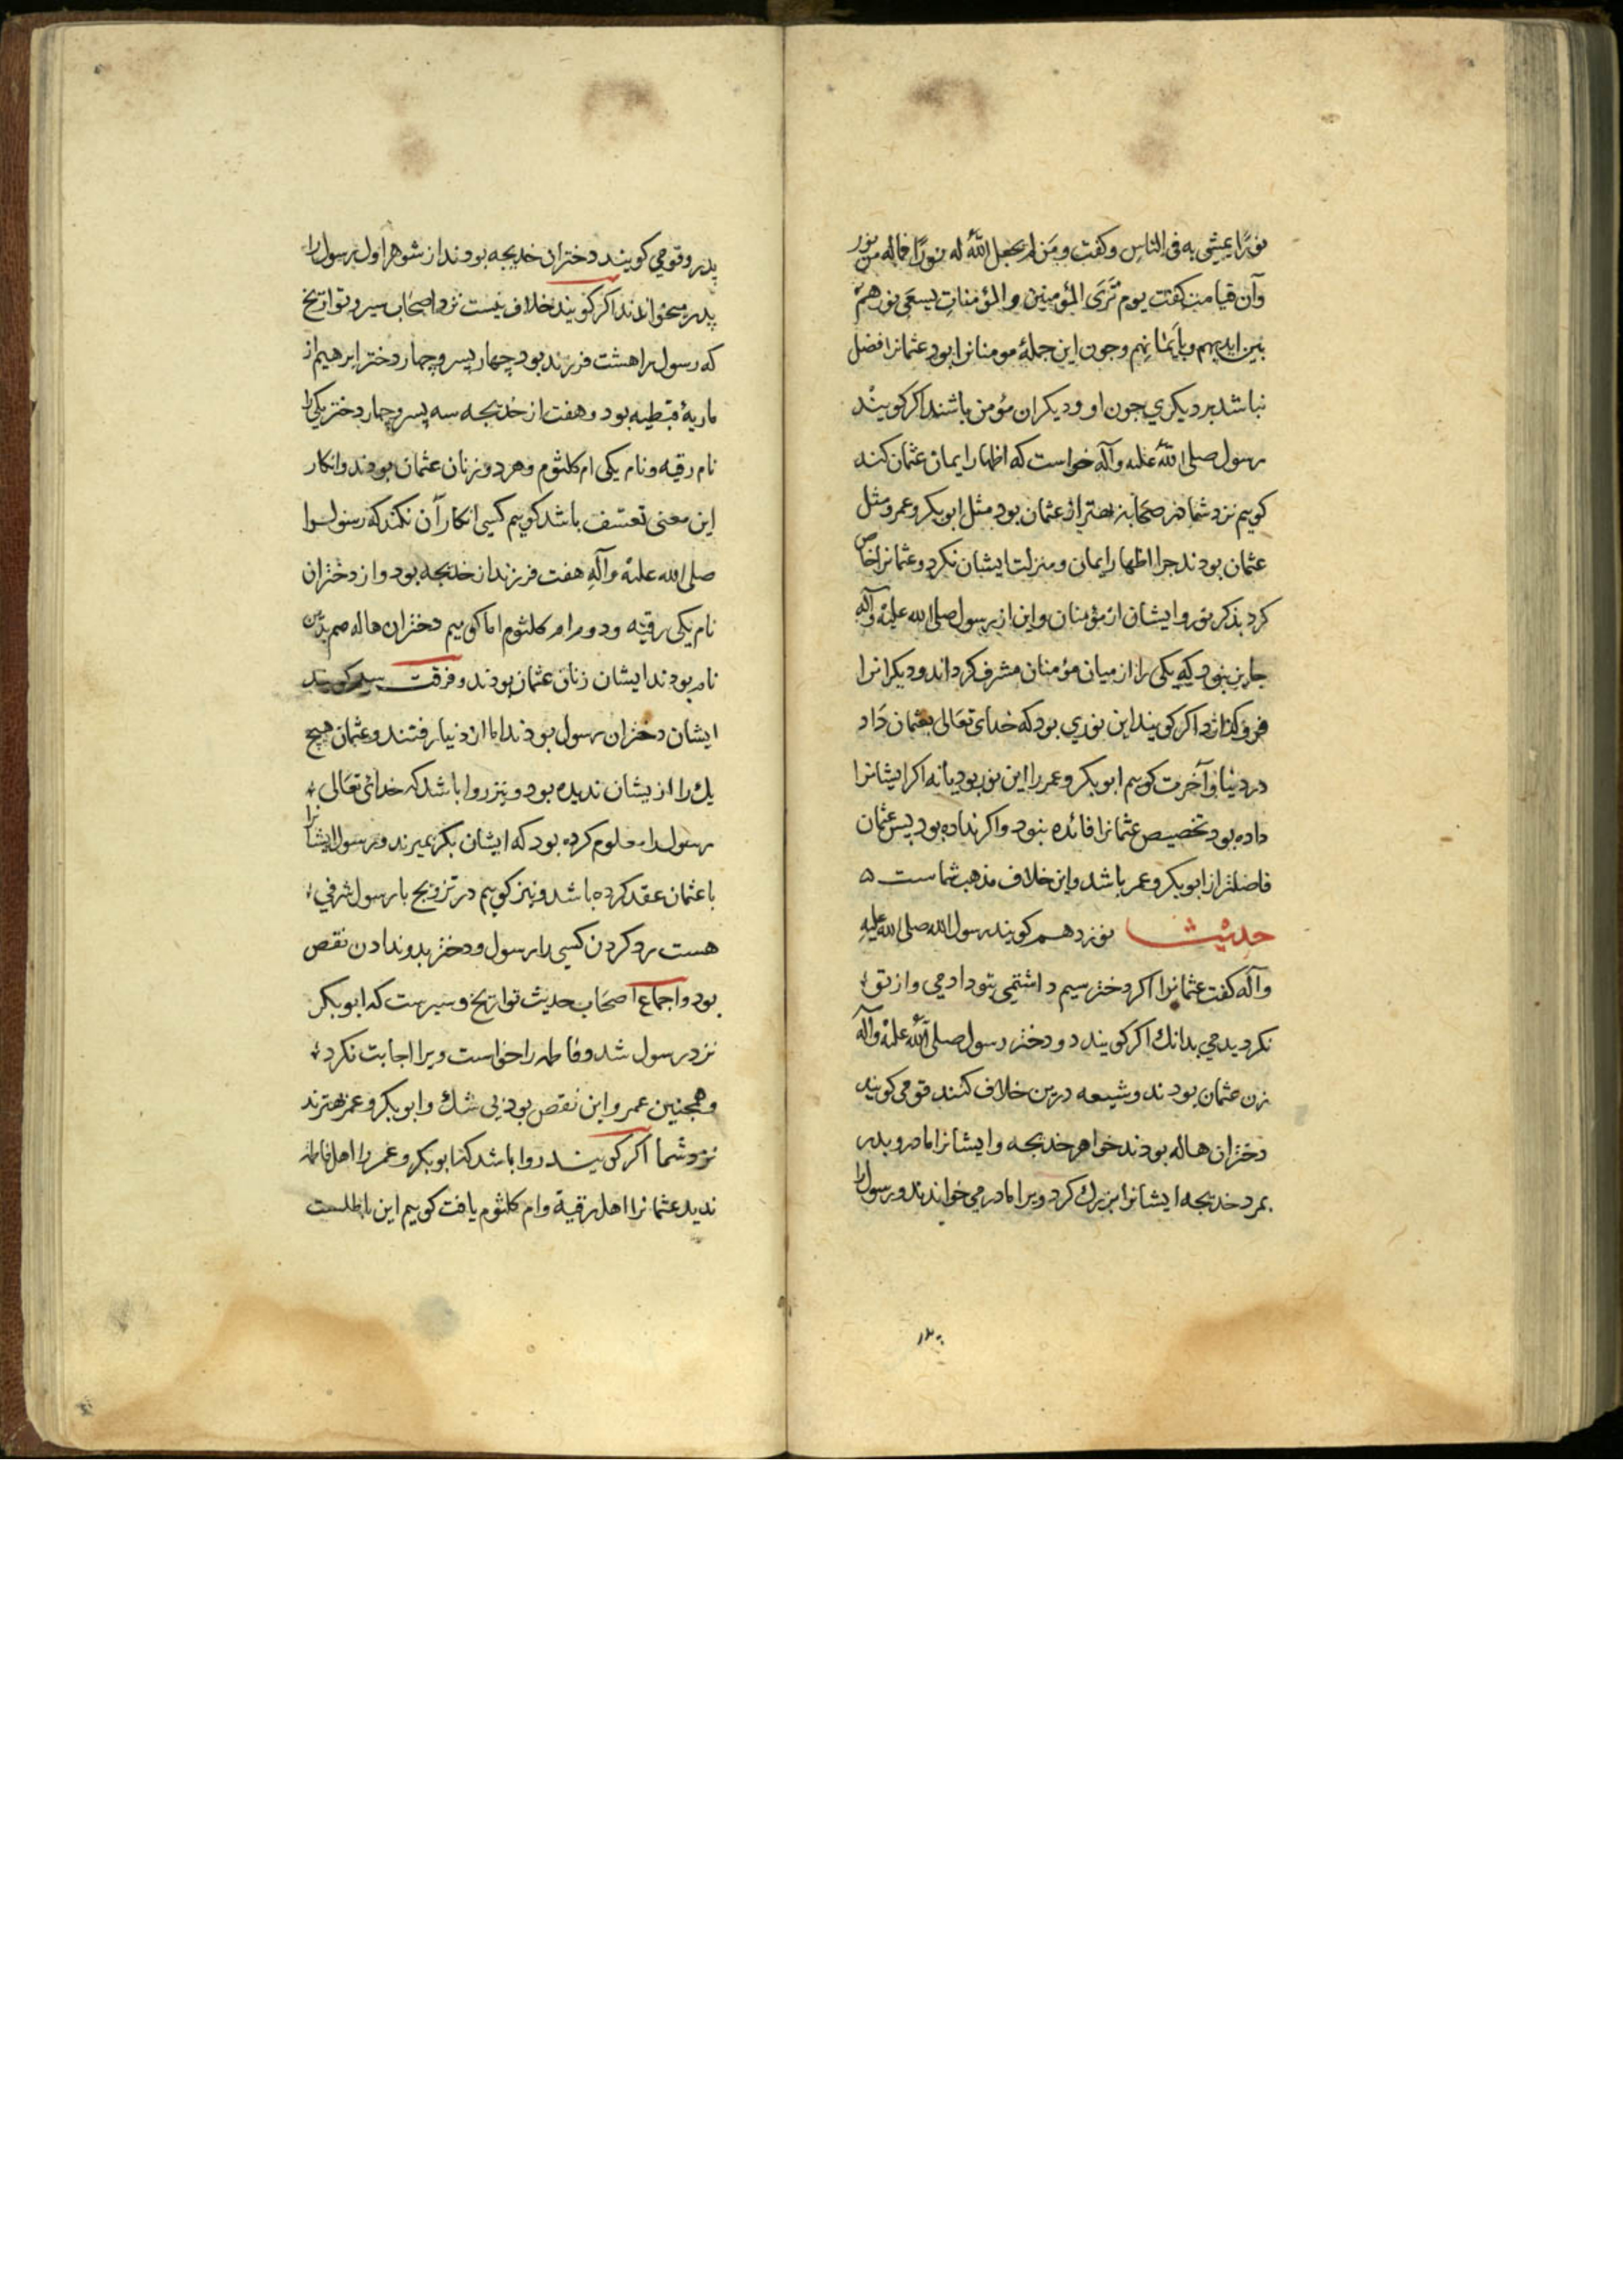 نورًا یمشی به فی الناس وکفت ومَن لم یجعل اللّٰه له نورًا فماله من نور
وآن قیامت کفت یوم تَرَی المؤمنین والمؤمناتِ یسعَی نورهم
بین ایدیهم وبایَمانهم وجون این جملهٔ مومنانرا بود عثمانرا افضل
نباشد بر دیکری جون او ودیکران مؤمن باشند اکر کویند
رسول صلی اللّٰه علیه وآله خواست که اظهار ایمان عثمان کند
کویم نزد شما در صحابه بهتر از عثمان بود مثل ابوبکر وعمر ومثل
عثمان بودند جرا اظهار ایمان ومنزلت ایشان نکرد وعثمانرا خاص
کرد بذکر نور وایشان از مؤمنان واین از رسول صلی الله علیه وآله
جایز نبود که یکی را از میان مؤمنان مشرف کرداند ودیکرانرا
فرو کذارد اکر کویند این نوری بود که خدای تعَالی بعثمان دَاد
در دنیا وآخرت کویم ابوبکر وعمر را این نور بود یا نه اکر ایشانرا
داده بود تخصیص عثمانرا فائده نبود واکر نداده بود پس عثمان
فاضلتر از ابوبکر وعمر باشد واین خلاف مذهب شماست ۵
حدیث نوزدهم کویند رسول الله صلی الله علیه
وآله کفت عثمانرا اکر دختر سیم داشتمی بتو دادمی واز تو
نکردیدمی بدانك اکر کویند دو دختر رسول صلی اللّٰه علیه وآله
زن عثمان بودند وشیعه درین خلاف کنند قومی کویند
دختران هاله بودند خواهر خدیجه وایشانرا مادر وپدر
بمرد خدیجه ایشانرا بزرك کرد ویرا مادر می خواندند ورسول را
۱۳۰
پدر وقومی کویند دختران خدیجه بودند از شوهر اول رسول را
پدر میخواندند اکر کویند خلاف نیست نزد اصحَاب سیر وتواریخ
که رسول را هشت فرزند بود چهار پسر وچهار دختر ابرهیم از
ماریهٔ قبطیه بود وهفت از خدیجه سه پسر وچهار دختر یکی را
نام رقیه ونام یکی ام کلثوم وهر دو زنان عثمان بودند وانکار
این معنی تعسّف باشد کویم کسی انکار آن نکند که رسول را
صلی الله علیه وآله هفت فرزند از خدیجه بود واز دختران
نام یکی رقیه ودوم ام کلثوم اما کویم دختران هاله هم بدین
نام بودند ایشان زنان عثمان بودند وفرقت کویند
ایشان دختران رسول بودند اما از دنیا رفتند وعثمان هیچ
یك را از یشان ندیده بود ونیز روا باشد که خدای تعَالی
رسول را معلوم کرده بود که ایشان بکر بمیرند ورسول ایشانرا
با عثمان عقد کرده باشد ونیز کویم در تزویج با رسول شرفی
هست رد کردن کسی را رسول ودختر بدو ندادن نقص
بود واجماع اصحَاب حدیث تواریخ وسیرست که ابوبکر
نزد رسول شد وفاطمه را خواست ویرا اجابت نکرد
وهمجنین عمر واین نقص بود بی شك وابوبکر وعمر بهترند
نزد شما اکر کویند روا باشد که ابوبکر وعمر را اهل فاطمه
ندید عثمانرا اهل رقیة وام کلثوم یافت کویم این باطلست